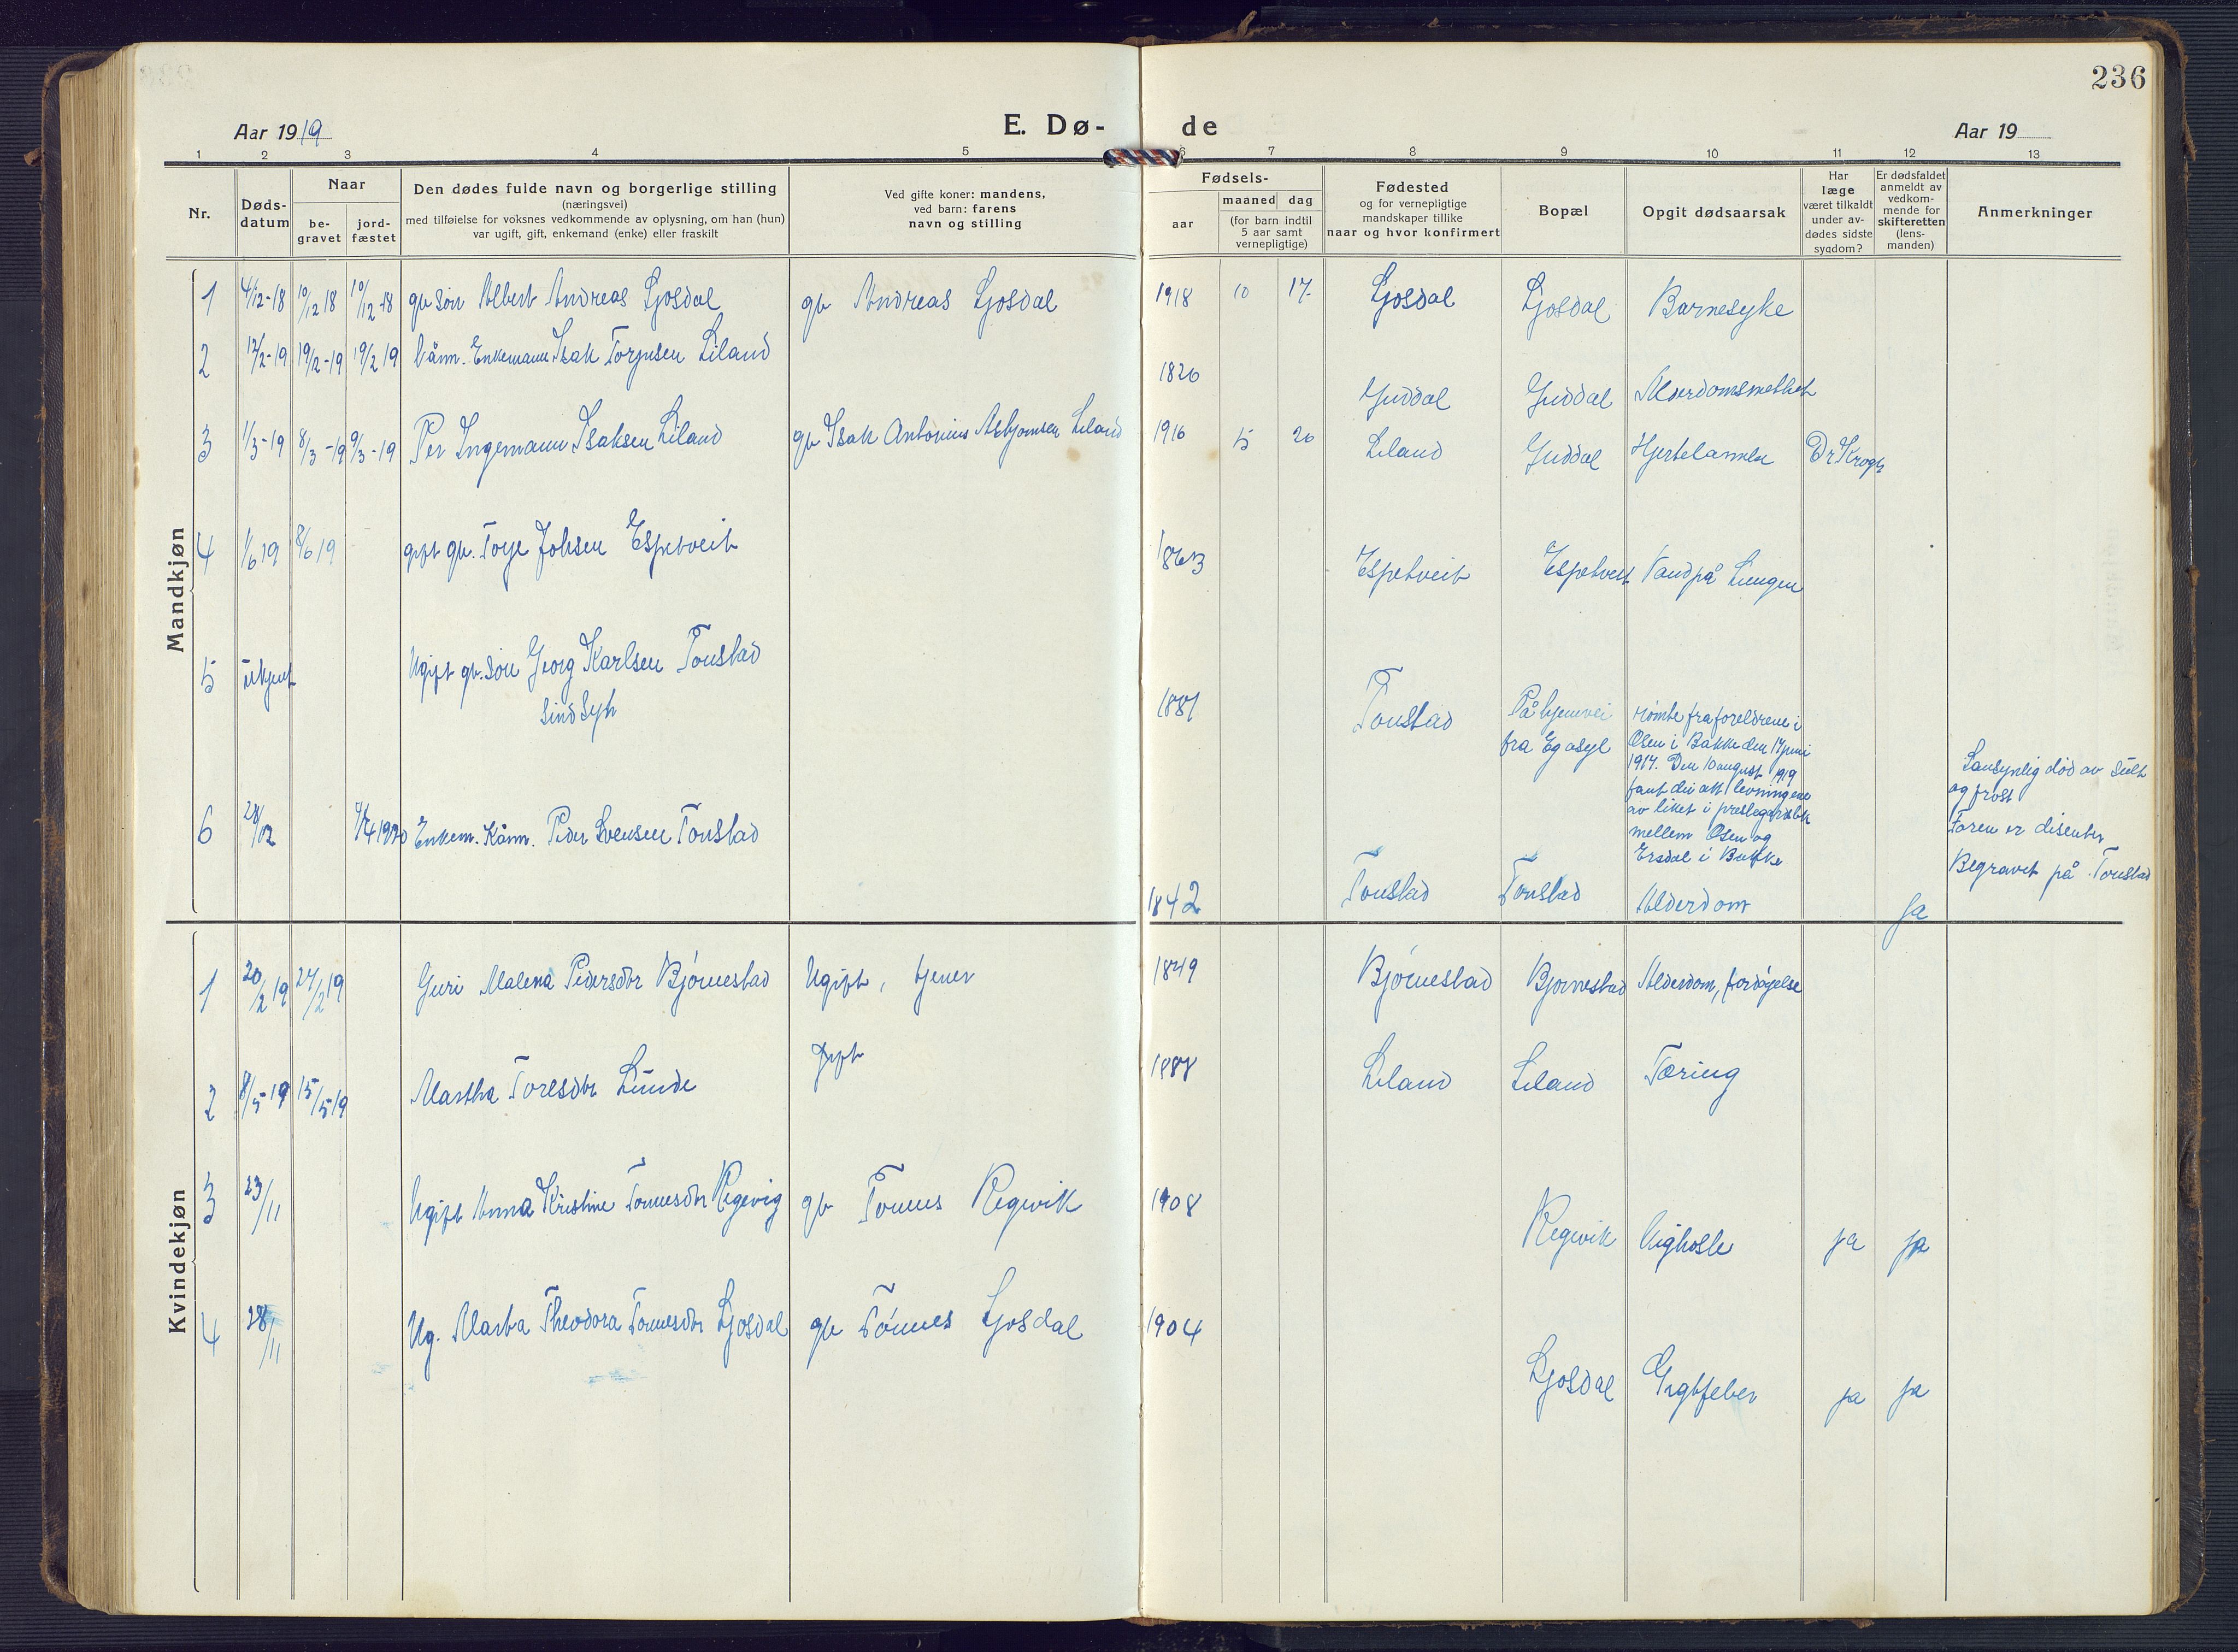 236
Aar 1919
E. Dø- de
Aar 19
1 2 3 4 5 6 7 8 9 10 11 12 13
Nr.
Døds-
datum
Naar
be-
gravet
jord-
fæstet
Den dødes fulde navn og borgerlige stilling
(næringsvei)
med tilføielse for voksnes vedkommende av oplysning, om han (hun)
var ugift, gift, enkemand (enke) eller fraskilt
Ved gifte koner: mandens,
ved barn: farens
navn og stilling
Fødsels-
aar
maaned dag
(for barn indtil
5 aar samt
vernepligtige)
Fødested
og for vernepligtige
mandskaper tillike
naar og hvor konfirmert
Bopæl
Opgit dødsaarsak
Har
læge
været tilkaldt
under av-
dødes sidste
sygdom?
Er dødsfaldet
anmeldt av
vedkom-
mende for
skifteretten
(lens-
manden)
Anmerkninger
Mandkjøn
1 4/12-18 10/12 18 10/12-18 gb søn Albert Andreas Ljosdal gb Andreas Ljosdal 1918 10 17 Ljosdal Ljosdal Barnesyke
2 12/2-19 19/2-19 19/2 19 kårm. Enkemann Isak Torjusen Liland 1826 Guddal Guddal Alderdomsmathet
3 1/3-19 8/3-19 9/3-19 Per Ingemann Isaksen Liland gb Isak Antonius Asbjornsen Liland 1916 5 26 Liland Guddal Hjertelammelse Dr Krogh
4 1/6 19 8/6 19 gift gb. Toye Johsen Espetveit 1863 Espetveit Espetveit Vand på Lungen
5 ukjent Ugift gb. søn Georg Karlsen Tonstad
Sindsyk
1881 Tonstad På hjemvei
fra Eg asyl
rømte fra foreldrene i
Osen i Bakke den 17 juni
1917. Den 10 august 1919
fant die att levningene
av liket i prestegårdsli
mellem Osen og
Ersdal i Bakke
Sansynlig død av sult
og frost
Faren er disenter
Begravet på Tonstad
6 28/12 4/4 1920 Enkem. Kårm. Peder Svensen Tonstad 1842 Tonstad Tonstad Alderdom ja
Kvindekjøn
1 20/2 19 27/2 19 Guri Malena Pedersdtr Bjørnestad Ugift, tjener 1849 Bjørnestad Bjørnestad Alderdom, fordøyelse
2 8/5-19 15/5 19 Martha Torlsdtr Lunde gift 1888 Liland Liland Tæring
3 23/11 Ugift Anna Kristine Tonnesdtr Regevig gb Tonnes Regevik 1908 Regevik Kighoste ja ja
4 28/11 Ug. Marta Theodora Tonnesdtr Ljosdal gb Tønnes Ljosdal 1904 Ljosdal Gigtfeber ja ja